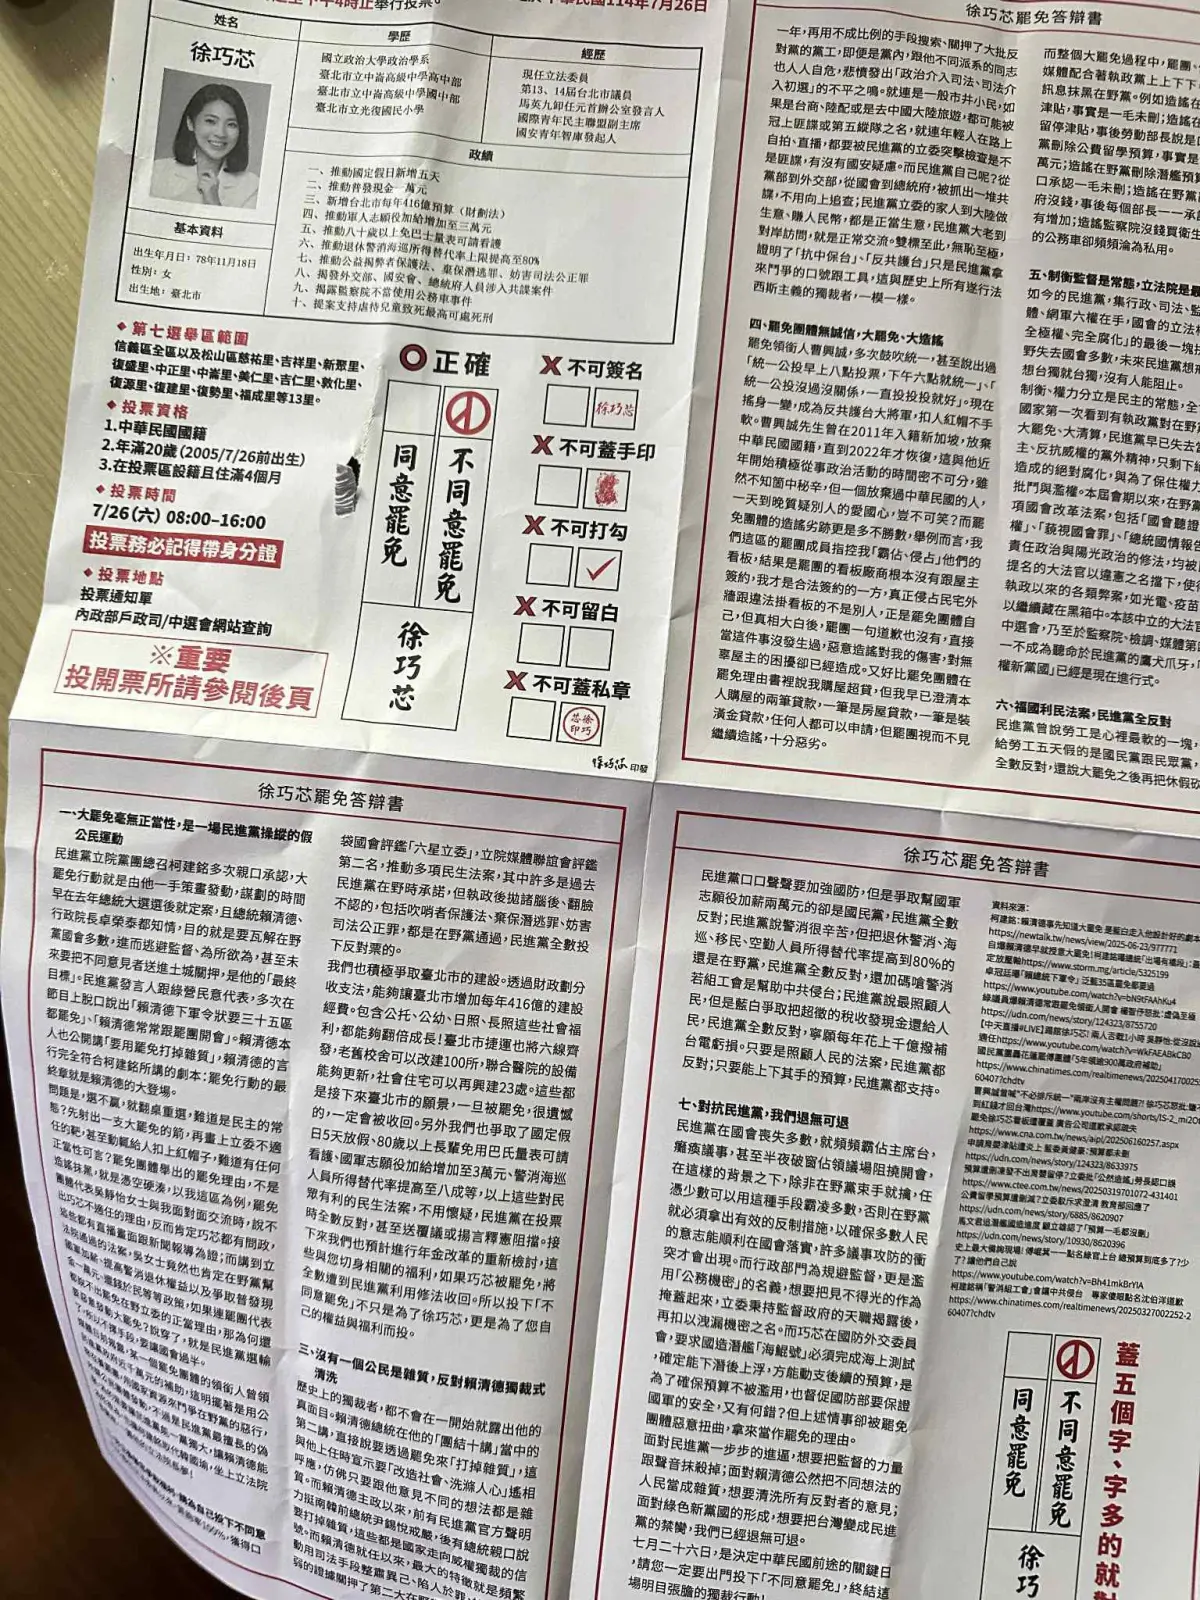 至下午4時止舉行投票。
中華民國114年7月26日
姓名
徐巧芯
學歷
國立政治大學政治學系
臺北市立中崙高級中學高中部
臺北市立中崙高級中學國中部
臺北市立光復國民小學
經歷
現任立法委員
第13、14屆台北市議員
馬英九卸任元首辦公室發言人
國際青年民主聯盟副主席
國安青年智庫發起人
政績
一、推動國定假日新增五天
二、推動普發現金一萬元
三、新增台北市每年416億預算（財劃法）
四、推動軍人志願役加給增加至三萬元
五、推動八十歲以上免巴士量表可請看護
六、推動退休警消海巡所得替代率上限提高至80%
七、推動公益揭弊者保護法、棄保潛逃罪、妨害司法公正罪
八、揭發外交部、國安會、總統府人員涉入共諜案件
九、揭露監察院不當使用公務車事件
十、提案支持虐待兒童致死最高可處死刑
基本資料
出生年月日：78年11月18日
性別：女
出生地：臺北市
◆第七選舉區範圍
信義區全區以及松山區慈祐里、吉祥里、新聚里、
復盛里、中正里、中崙里、美仁里、吉仁里、敦化里、
復源里、復建里、復勢里、福成里等13里。
◆投票資格
1.中華民國國籍
2.年滿20歲（2005/7/26前出生）
3.在投票區設籍且住滿4個月
◆投票時間
7/26（六）08:00–16:00
投票務必記得帶身分證
◆投票地點
投票通知單
內政部戶政司/中選會網站查詢
※重要
投開票所請參閱後頁
正確
同意罷免
不同意罷免
徐巧芯
X 不可簽名
徐巧芯
X 不可蓋手印
X 不可打勾
X 不可留白
X 不可蓋私章
徐巧芯印
徐巧芯 印發
徐巧芯罷免答辯書
一年，再用不成比例的手段搜索、關押了大批反
對黨的黨工，即便是黨內，跟他不同派系的同志
也人人自危，悲憤發出「政治介入司法、司法介
入初選」的不平之鳴。就連是一般市井小民，如
果是台商、陸配或是去中國大陸旅遊，都可能被
冠上匪諜或第五縱隊之名，就連年輕人在路上
自拍、直播，都要被民進黨的立委突擊檢查是不
是匪諜，有沒有國安疑慮。而民進黨自己呢？從
黨部到外交部，從國會到總統府，被抓出一堆共
諜，不用向上追查；民進黨立委的家人到大陸做
生意、賺人民幣，都是正當生意，民進黨大老到
對岸訪問，就是正常交流。雙標至此，無恥至極，
證明了「抗中保台」、「反共護台」只是民進黨拿
來鬥爭的口號跟工具，這與歷史上所有遂行法
西斯主義的獨裁者，一模一樣。
四、罷免團體無誠信，大罷免、大造謠
罷免領銜人曹興誠，多次鼓吹統一，甚至說出過
「統一公投早上八點投票，下午六點就統一」、「
統一公投沒過沒關係，一直投投投就好」。現在
搖身一變，成為反共護台大將軍，扣人紅帽不手
軟。曹興誠先生曾在2011年入籍新加坡，放棄
中華民國國籍，直到2022年才恢復，這與他近
年開始積極從事政治活動的時間密不可分，雖
然不知箇中秘辛，但一個放棄過中華民國的人，
一天到晚質疑別人的愛國心，豈不可笑？而罷
免團體的造謠劣跡更是多不勝數，舉例而言，我
們這區的罷團成員指控我「霸佔、侵占」他們的
看板，結果是罷團的看板廠商根本沒有跟屋主
簽約，我才是合法簽約的一方，真正侵占民宅外
牆跟違法掛看板的不是別人，正是罷免團體自
己，但真相大白後，罷團一句道歉也沒有，直接
當這件事沒發生過，惡意造謠對我的傷害，對無
辜屋主的困擾卻已經造成。又好比罷免團體在
罷免理由書裡說我購屋超貸，但我早已澄清本
人購屋的兩筆貸款，一筆是房屋貸款，一筆是裝
潢貸款，任何人都可以申請，但罷團視而不見
繼續造謠，十分惡劣。
而整個大罷免過程中，罷團、
媒體配合著執政黨上上下下
訊息抹黑在野黨。例如造謠在
津貼，事實是一毛未刪；造謠在
留停津貼，事後勞動部長說是
黨刪除公費留學預算，事實是
萬元；造謠在野黨刪除潛艦預算
口承認一毛未刪；造謠在野黨
府沒錢，事後每個部長一一承
有增加；造謠監察院沒錢買衛生
的公務車卻頻頻淪為私用。
五、制衡監督是常態，立法院是最
如今的民進黨，集行政、司法、監
體、網軍六權在手，國會的立法權
全極權、完全腐化」的最後一塊拼
野失去國會多數，未來民進黨想戒
想台獨就台獨，沒有人能阻止。
制衡、權力分立是民主的常態，全
國家第一次看到有執政黨對在野
大罷免、大清算，民進黨早已失去當
主、反抗威權的黨外精神，只剩下絕
造成的絕對腐化，與為了保住權力
批鬥與濫權。本屆會期以來，在野黨
項國會改革法案，包括「國會聽證
權」、「藐視國會罪」、「總統國情報告
責任政治與陽光政治的修法，均被
提名的大法官以違憲之名擋下，使得
執政以來的各類弊案，如光電、疫苗
以繼續藏在黑箱中。本該中立的大法官
中選會，乃至於監察院、檢調、媒體第四
一不成為聽命於民進黨的鷹犬爪牙，
權新黨國」已經是現在進行式。
六、福國利民法案，民進黨全反對
民進黨曾說勞工是心裡最軟的一塊，
給勞工五天假的是國民黨跟民眾黨，
全數反對，還說大罷免之後再把休假砍
徐巧芯罷免答辯書
一、大罷免毫無正當性，是一場民進黨操縱的假
公民運動
民進黨立院黨團總召柯建銘多次親口承認，大
罷免行動就是由他一手策畫發動，謀劃的時間
早在去年總統大選選後就定案，且總統賴清德、
行政院長卓榮泰都知情，目的就是要瓦解在野
黨國會多數，進而逃避監督、為所欲為，甚至未
來要把不同意見者送進土城關押，是他的「最終
目標」。民進黨發言人跟綠營民意代表，多次在
節目上脫口說出「賴清德下軍令狀要三十五區
都罷免」、「賴清德常常跟罷團開會」。賴清德本
人也公開講「要用罷免打掉雜質」，賴清德的言
行完全符合柯建銘所講的劇本：罷免行動的最
終章就是賴清德的大登場。
問題是，選不贏，就翻桌重選，難道是民主的常
態？先射出一支大罷免的箭，再畫上立委不適
任的靶，甚至動輒給人扣上紅帽子，難道有任何
正當性可言？罷免團體舉出的罷免理由，不是
造謠抹黑，就是憑空硬湊，以我這區為例，罷免
團體代表吳靜怡女士與我面對面交流時，說不
出巧芯不適任的理由，反而肯定巧芯都有問政，
這些都有直播畫面跟新聞報導為證；而講到立
法院通過的法案，吳女士竟然也肯定在野黨幫
國軍加薪、提高警消退休權益以及爭取普發現
金一萬元、還錢於民等等政策，如果連罷團代表
都說不出罷免在野立委的正當理由，那為何還
要勞師動眾大罷免？說穿了，就是民進黨選輸
了，所以不擇手段，要讓國會過半。
袋國會評鑑「六星立委」，立院媒體聯誼會評鑑
第二名，推動多項民生法案，其中許多是過去
民進黨在野時承諾，但執政後拋諸腦後、翻臉
不認的，包括吹哨者保護法、棄保潛逃罪、妨害
司法公正罪，都是在野黨通過，民進黨全數投
下反對票的。
我們也積極爭取臺北市的建設。透過財政劃分
收支法，能夠讓臺北市增加每年416億的建設
經費。包含公托、公幼、日照、長照這些社會福
利，都能夠翻倍成長！臺北市捷運也將六線齊
發，老舊校舍可以改建100所，聯合醫院的設備
能夠更新，社會住宅可以再興建23處。這些都
是接下來臺北市的願景，一旦被罷免，很遺憾
的，一定會被收回。另外我們也爭取了國定假
日5天放假、80歲以上長輩免用巴氏量表可請
看護、國軍志願役加給增加至3萬元、警消海巡
人員所得替代率提高至八成等，以上這些對民
眾有利的民生法案，不用懷疑，民進黨在投票
時全數反對，甚至送覆議或揚言釋憲阻擋。接
下來我們也預計進行年金改革的重新檢討，這
些與您切身相關的福利，如果巧芯被罷免，將
全數遭到民進黨利用修法收回。所以投下「不
同意罷免」不只是為了徐巧芯，更是為了您自
己的權益與福利而投。
三、沒有一個公民是雜質，反對賴清德獨裁式
清洗
歷史上的獨裁者，都不會在一開始就露出他的
真面目。賴清德總統在他的「團結十講」當中的
第二講，直接說要透過罷免來「打掉雜質」，這
與他上任時宣示要「改造社會、洗滌人心」遙相
呼應，彷彿只要跟他意見不同的想法都是雜
質。而賴清德主政以來，前有民進黨官方聲明
力挺南韓前總統尹錫悅戒嚴，後有總統親口說
要打掉雜質，這些都是國家走向威權獨裁的信
號。而賴清德就任以來，最大的特徵就是頻繁
動用司法手段整肅異己、陷人於罪
徐巧芯罷免答辯書
民進黨口口聲聲要加強國防，但是爭取幫國軍
志願役加薪兩萬元的卻是國民黨，民進黨全數
反對；民進黨說警消很辛苦，但把退休警消、海
巡、移民、空勤人員所得替代率提高到80%的
還是在野黨，民進黨全數反對，還加碼嗆警消
若組工會是幫助中共侵台；民進黨說最照顧人
民，但是藍白爭取把超徵的稅收發現金還給人
民，民進黨全數反對，寧願每年花上千億撥補
台電虧損。只要是照顧人民的法案，民進黨都
反對；只要能上下其手的預算，民進黨都支持。
七、對抗民進黨，我們退無可退
民進黨在國會喪失多數，就頻頻霸佔主席台，
癱瘓議事，甚至半夜破窗佔領議場阻撓開會，
在這樣的背景之下，除非在野黨束手就擒，任
憑少數可以用這種手段霸凌多數，否則在野黨
就必須拿出有效的反制措施，以確保多數人民
的意志能順利在國會落實，許多議事攻防的衝
突才會出現。而行政部門為規避監督，更是濫
用「公務機密」的名義，想要把見不得光的作為
掩蓋起來，立委秉持監督政府的天職揭露後，
再扣以洩漏機密之名。而巧芯在國防外交委員
會，要求國造潛艦「海鯤號」必須完成海上測試
，確定能下潛後上浮，方能動支後續的預算，是
為了確保預算不被濫用，也督促國防部要保證
國軍的安全，又有何錯？但上述情事卻被罷免
團體惡意扭曲，拿來當作罷免的理由。
面對民進黨一步步的進逼，想要把監督的力量
跟聲音抹殺掉；面對賴清德公然把不同想法的
人民當成雜質，想要清洗所有反對者的意見；
面對綠色新黨國的形成，想要把台灣變成民進
黨的禁臠，我們已經退無可退。
七月二十六日，是決定中華民國前途的關鍵日
，請您一定要出門投下「不同意罷免」，終結這
場明目張膽的獨裁行動！
資料來源：
https://newtalk.tw/news/view/2025-06-23/977771
https://www.storm.mg/article/5325199
https://www.youtube.com/watch?v=bN9tFAAhKu4
https://udn.com/news/story/124323/8755720
https://www.youtube.com/watch?v=WkFAEABkCB0
https://www.cna.com.tw/news/aipl/202506160257.aspx
https://udn.com/news/story/124323/8633975
https://www.ctee.com.tw/news/20250319701072-431401
https://udn.com/news/story/6885/8620907
https://udn.com/news/story/10930/8620396
https://www.youtube.com/watch?v=Bh41mkBrYIA
https://www.chinatimes.com/realtimenews/20250327002252-2
60407?chdtv
同意罷免
不同意罷免
徐巧
蓋五個字、字多的就對